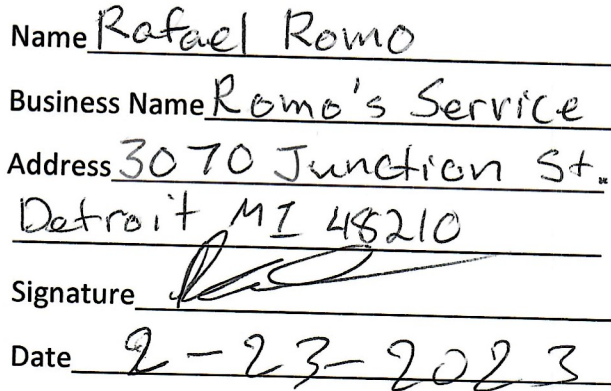 Name Rafael Romo
Business Name Romo's Service
Address 3070 Junction St.
Detroit MI 48210
Signature
Date 2-23-2023